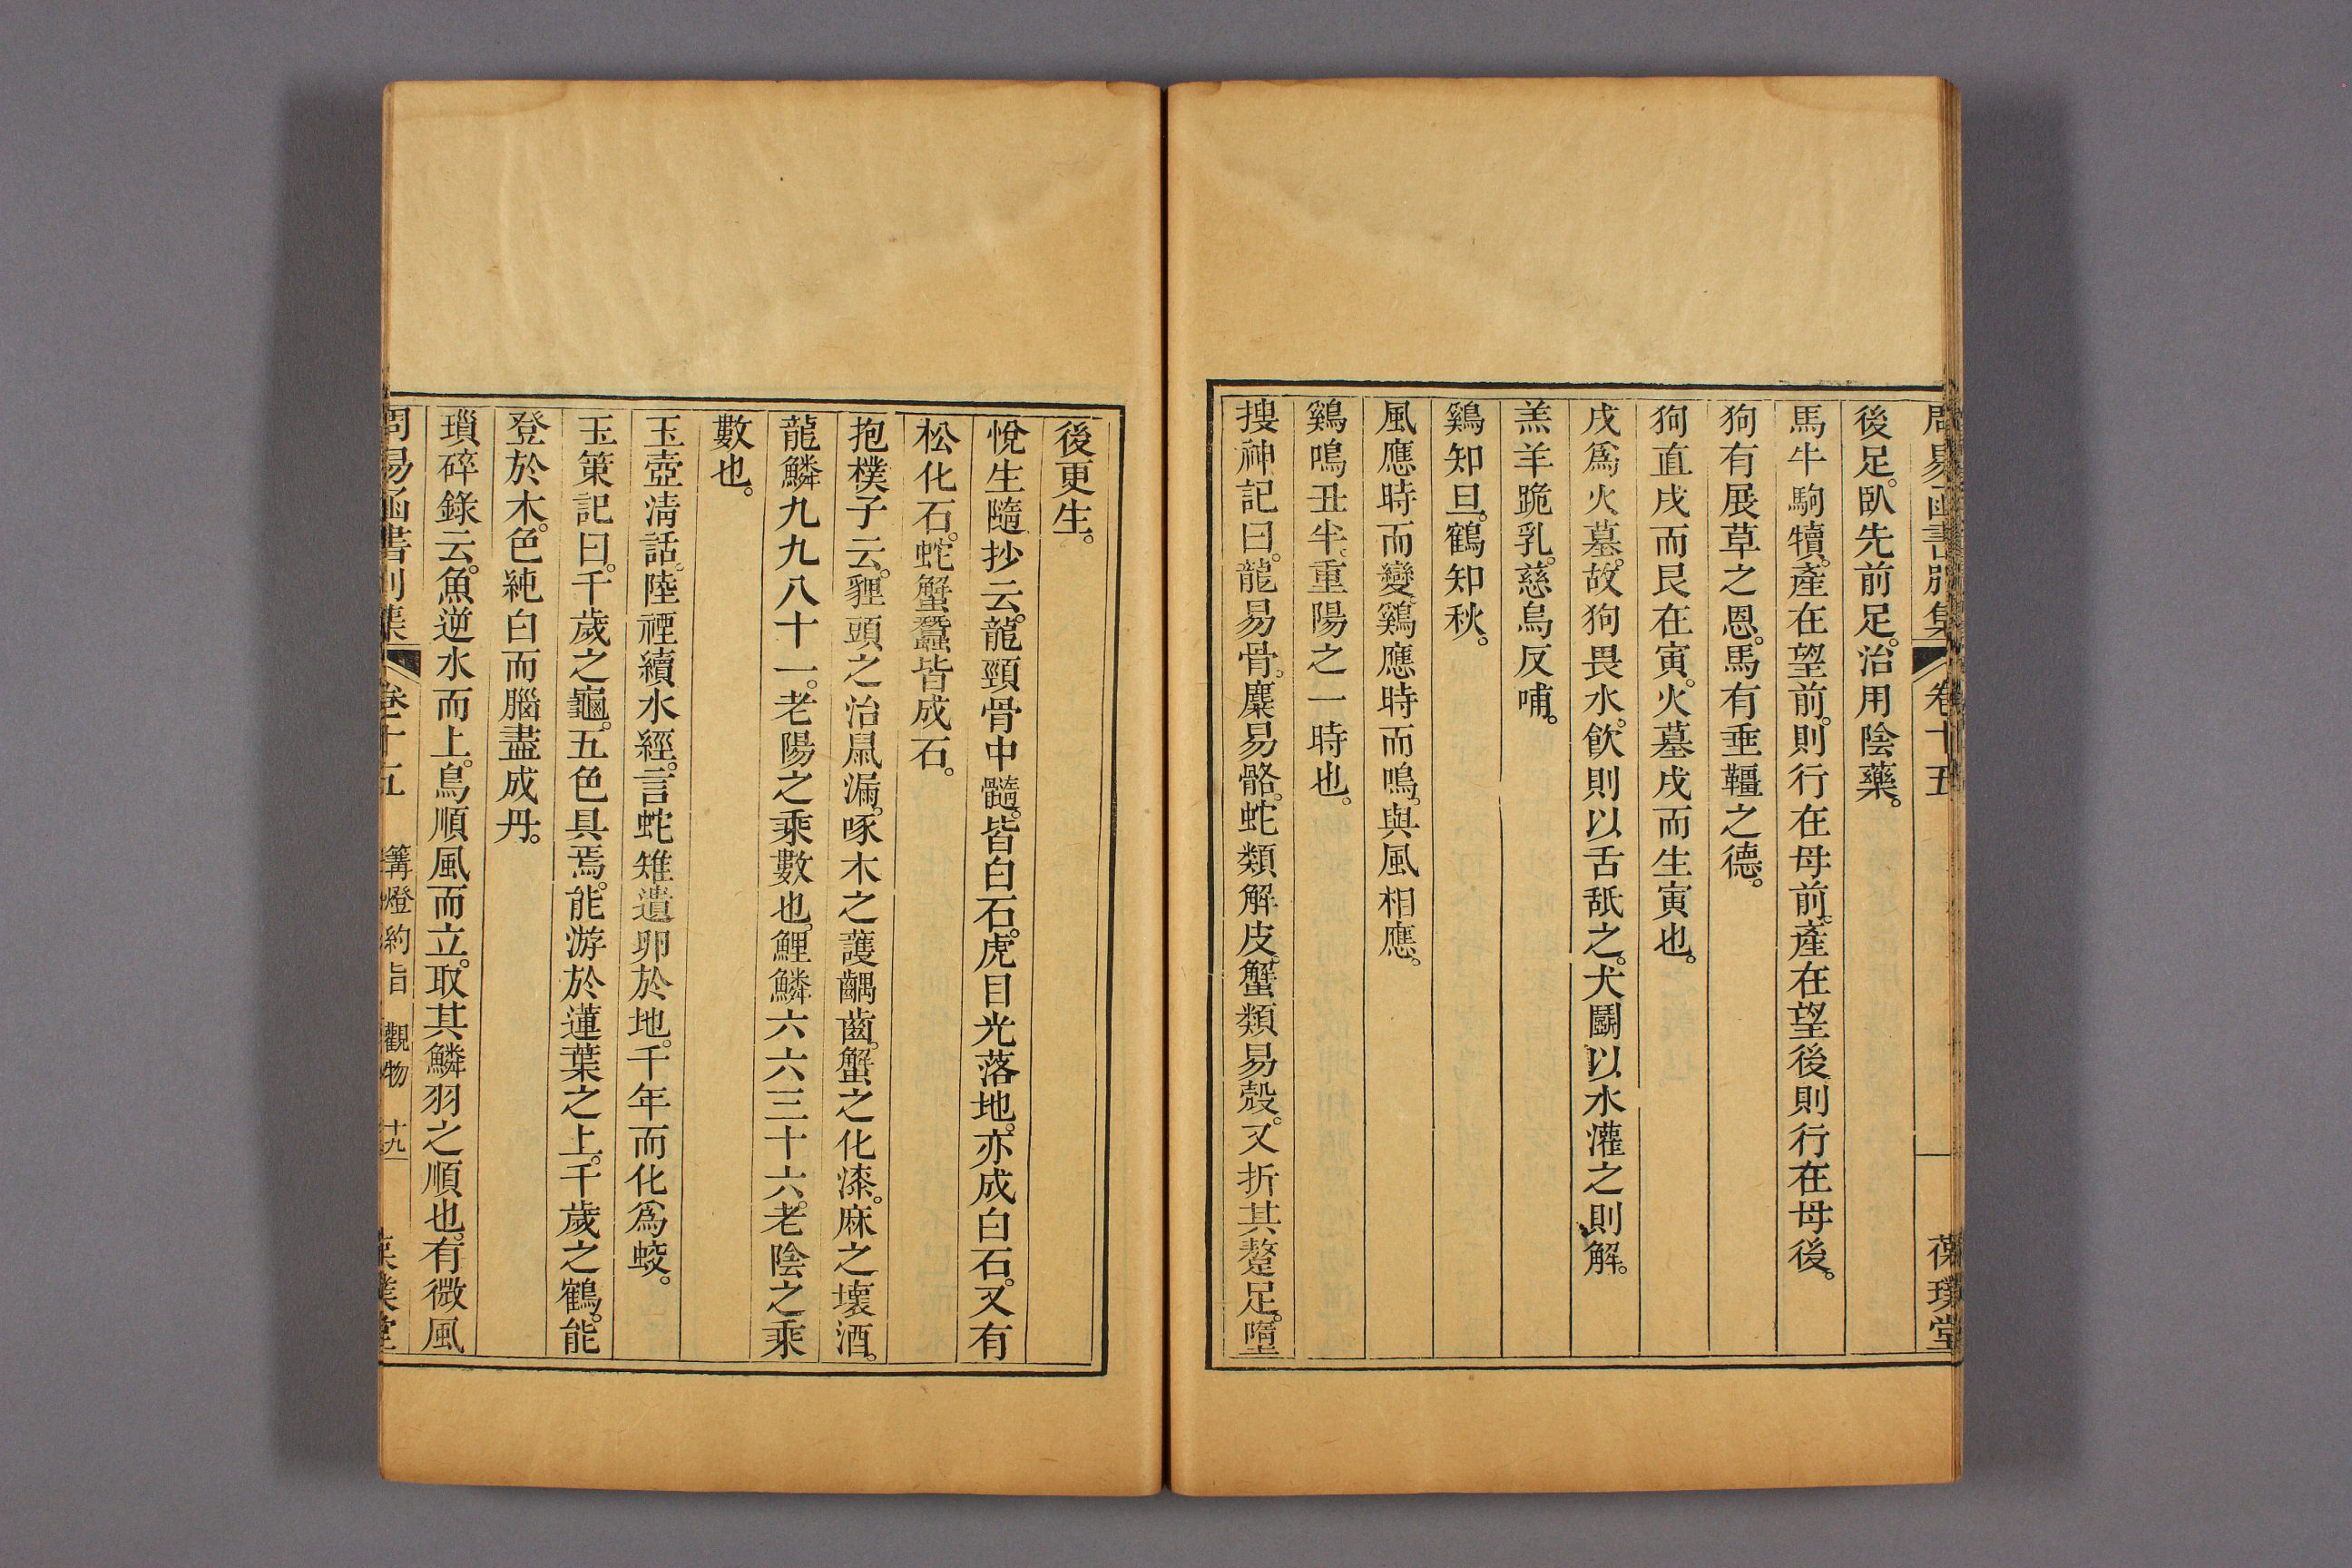 周易函書別集 卷十五 葆璞堂
後足。臥先前足。治用陰藥。
馬牛駒犢。產在望前。則行在母前。產在望後。則行在母後。
狗有展草之恩。馬有垂韁之德。
狗直戌而艮在寅。火墓戌而生寅也。
戌爲火墓。故狗畏水。飲則以舌舐之。犬鬭以水灌之則解。
羔羊跪乳。慈烏反哺。
鷄知旦。鶴知秋。
風應時而變。鷄應時而鳴。與風相應。
鷄鳴丑半。重陽之一時也。
搜神記曰。龍易骨。麋易骼。蛇類解皮。蟹類易殼。又折其螯足。墮
後更生。
悅生隨抄云。龍頸骨中髓。皆白石。虎目光落地。亦成白石。又有
松化石。蛇蟹蠶皆成石。
抱樸子云。貍頭之治鼠漏。啄木之護齲齒。蟹之化漆。麻之壞酒。
龍鱗九九八十一。老陽之乘數也。鯉鱗六六三十六。老陰之乘
數也。
玉壺淸話。陸禋續水經。言蛇雉遺卵於地。千年而化爲蛟。
玉策記曰。千歲之龜。五色具焉。能游於蓮葉之上。千歲之鶴。能
登於木。色純白而腦盡成丹。
瑣碎錄云。魚逆水而上。鳥順風而立。取其鱗羽之順也。有微風
周易函書別集 卷十五 篝燈約旨 觀物 十九 葆璞堂